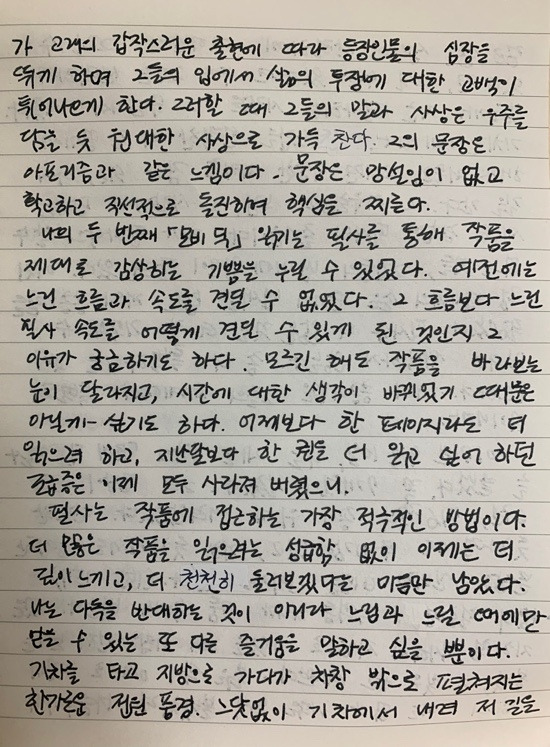 가 고래의 갑작스러운 출현에 따라 등장인물의 심장을
뛰게 하며 그들의 입에서 삶의 투쟁에 대한 고백이
튀어나오게 한다. 그러할 때 그들의 말과 사상은 우주를
담을 듯 원대한 사상으로 가득 찬다. 그의 문장은
아포리즘과 같은 느낌이다. 문장은 망설임이 없고
확고하고 직선적으로 돌진하며 핵심을 찌른다.
나의 두 번째 「모비 딕」 읽기는 필사를 통해 작품을
제대로 감상하는 기쁨을 누릴 수 있었다. 예전에는
느린 흐름과 속도를 견딜 수 없었다. 그 흐름보다 느린
필사 속도를 어떻게 견딜 수 있게 된 것인지 그
이유가 궁금하기도 하다. 모르긴 해도 작품을 바라보는
눈이 달라지고, 시간에 대한 생각이 바뀌었기 때문은
아닌가 싶기도 하다. 어제보다 한 페이지라도 더
읽으려 하고, 지난달보다 한 권을 더 읽고 싶어 하던
조급증은 이제 모두 사라져 버렸으니.
필사는 작품에 접근하는 가장 적극적인 방법이다.
더 많은 작품을 읽으려는 성급함 없이 이제는 더
깊이 느끼고, 더 천천히 둘러보겠다는 마음만 남았다.
나는 다독을 반대하는 것이 아니라 느림과 느릴 때에만
얻을 수 있는 또 다른 즐거움을 말하고 싶을 뿐이다.
기차를 타고 지방으로 가다가 차창 밖으로 펼쳐지는
한가로운 전원 풍경. 느닷없이 기차에서 내려 저 길을